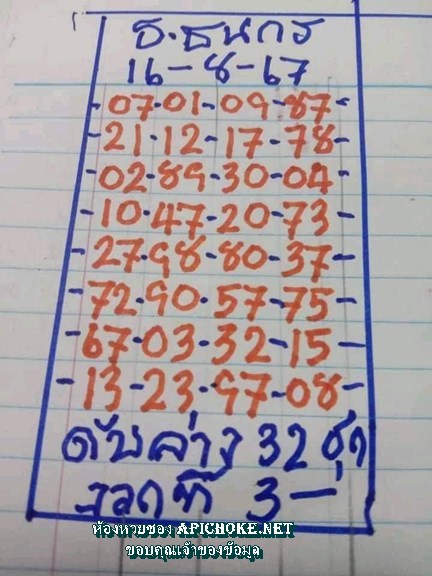 ธ.ธนกร
16-8-67
-07-01-09-87-
-21-12-17-78-
-02-89-30-04-
-10-47-20-73-
-27-98-80-37-
-72-90-57-75-
-67-03-32-15-
-13-23-97-08-
ดับล่าง 32 ชุด
งวดที่ 3-
ห้องหวยซอง APICHOKE.NET
ขอบคุณเจ้าของข้อมูล